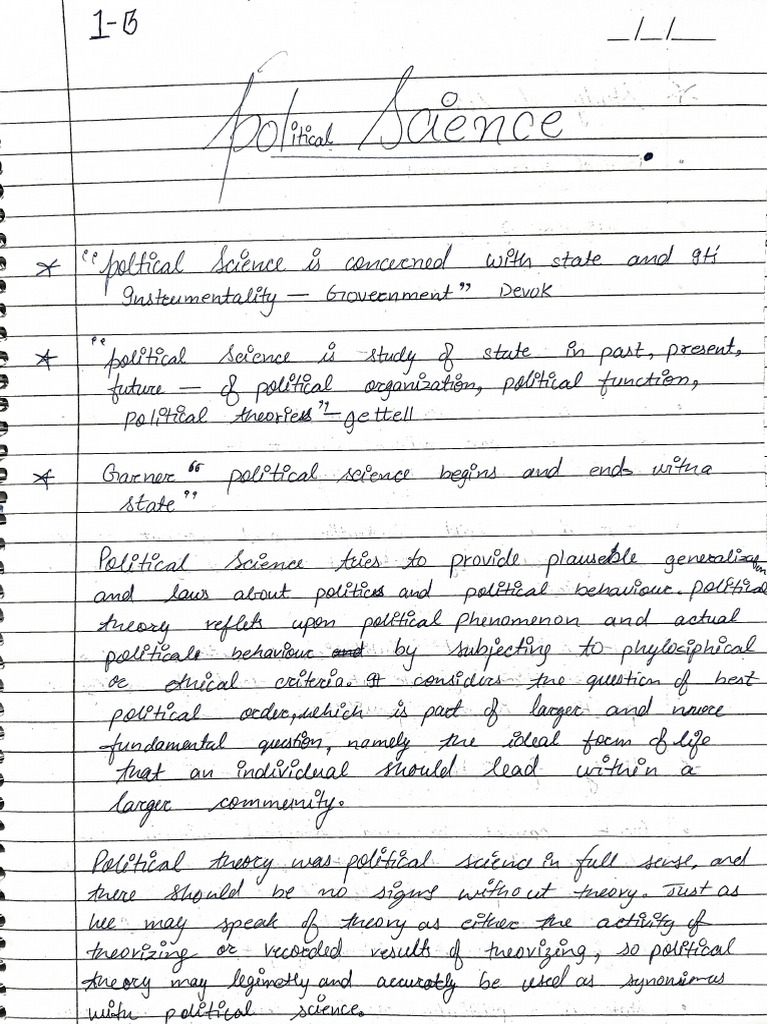 1-B
_/_/_
Political Science
* "poltical Science is concerned with state and its
Instrumentality — Government" Devok
* "political science is study of state in past, present,
future — of political organization, political function,
political theories" - gettell
* Garner "political science begins and ends with a
state"
Political Science tries to provide plauseble generalization
and laws about politics and political behaviour. political
theory reflets upon political phenomenon and actual
politicals behaviour and by subjecting to phylosiphical
or ethical criteria. It considers the question of best
political order, which is part of larger and more
fundamental question, namely the ideal form of life
that an individual should lead within a
larger community.
Political theory was political science in full sense, and
there should be no signs without theory. Just as
we may speak of theory as either the activity of
theorizing or recorded results of theorizing, so political
theory may leginetly and accuratly be used as synonimus
with political science.